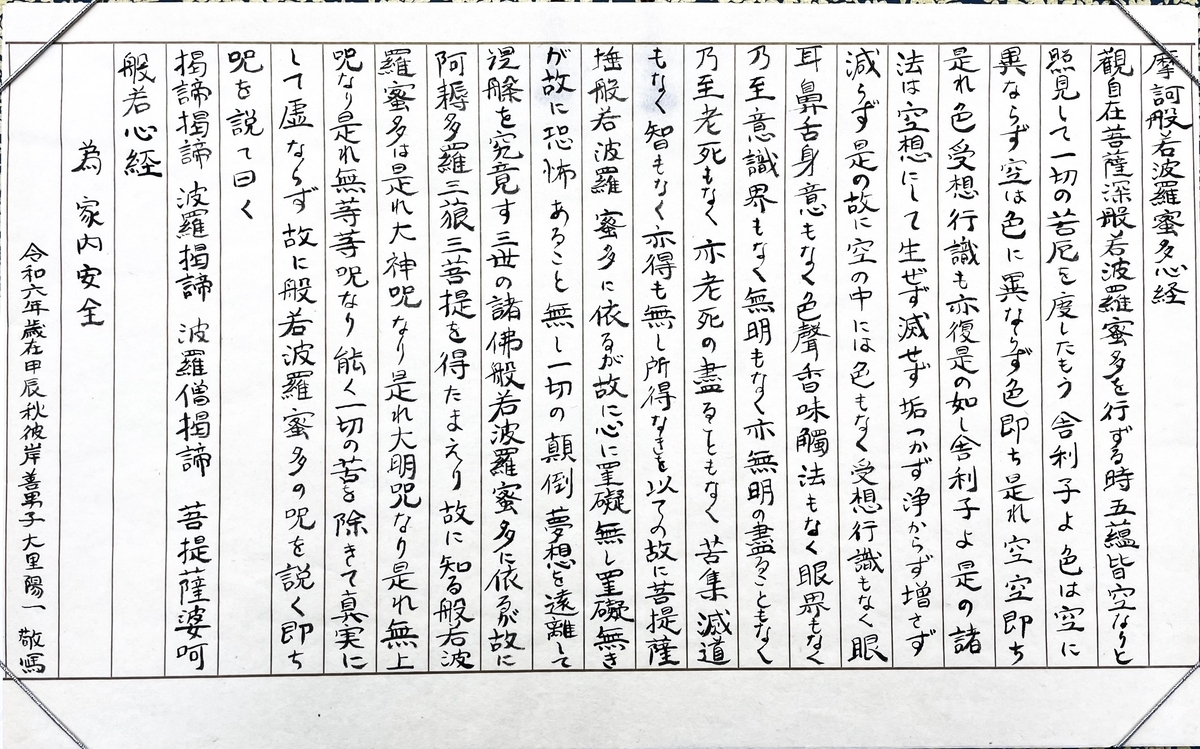 摩訶般若波羅蜜多心経
觀自在菩薩深般若波羅蜜多を行ずる時五蘊皆空なりと
照見して一切の苦厄を度したもう 舎利子よ色は空に
異ならず空は色に異ならず色即ち是れ空 空即ち
是れ色 受想行識も亦復是の如し舎利子よ是の諸
法は空想にして生ぜず滅せず垢つかず浄からず増さず
減らず是の故に空の中には色もなく受想行識もなく眼
耳鼻舌身意もなく色聲香味觸法もなく眼界もなく
乃至意識界もなく無明もなく亦無明の盡ることもなく
乃至老死もなく 亦老死の盡ることもなく 苦集滅道
もなく智もなく亦得も無し所得なきを以ての故に菩提薩
埵般若波羅蜜多に依るが故に心に罣礙無し罣礙無き
が故に恐怖あること無し一切の顛倒夢想を遠離して
涅槃を究竟す三世の諸佛般若波羅蜜多に依るが故に
阿耨多羅三藐三菩提を得たまえり 故に知る般若波
羅蜜多は是れ大神呪なり是れ大明呪なり是れ無上
呪なり是れ無等等呪なり能く一切の苦を除きて真実に
して虚ならず故に般若波羅蜜多の呪を説く即ち
呪を説て曰く
揭諦揭諦 波羅揭諦 波羅僧揭諦 菩提薩婆呵
般若心経
為 家内安全
令和六年歳在甲辰秋彼岸善男子大里陽一 敬写